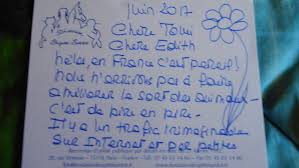 Juin 2017
Chère Tomi
Chère Edith
hélas, en France c'est pareil!
nous n'arrivons pas à faire
améliorer le sort des animaux
c'est de pire en pire.
Il y a un trafic inimaginable
sur Internet et par petites